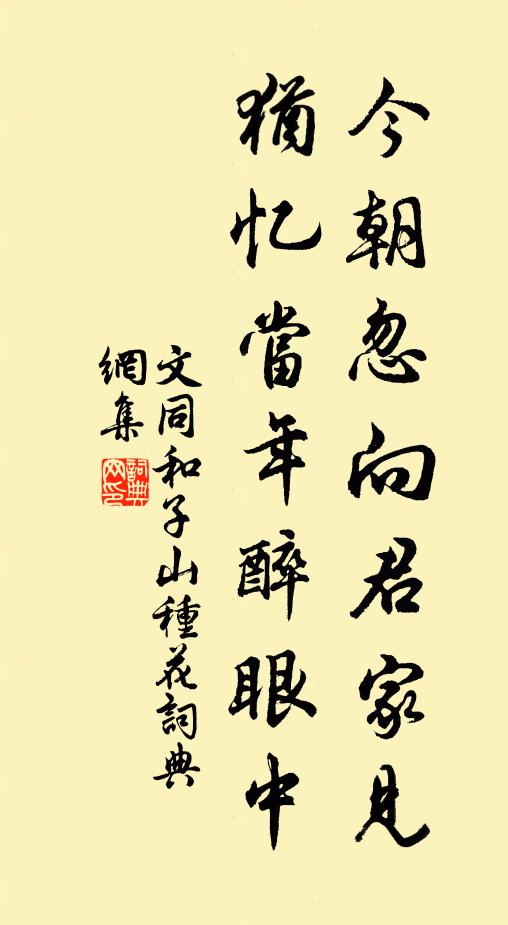 今朝忽向君家見
猶忆當年醉眼中
文同和子山種花詞典
網集
詞典網印